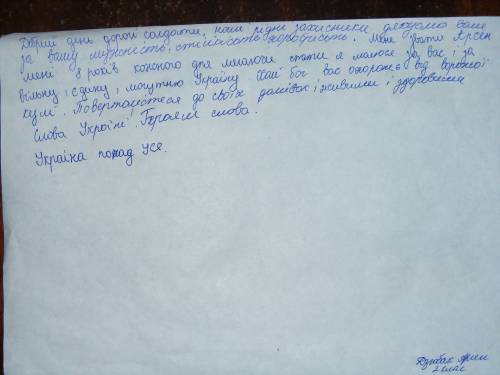 Добрий день дорогі солдати, наші рідні захисники, дякуємо вам
за вашу мужність, стійкість, хоробрість. Мене звати Арсен
мені 8 років кожного дня лягаючи спати я молюся за вас і за
вільну, єдину, могутню Україну Хай бог вас охороняє від ворожої
кулі. Повертайтеся до своїх домівок і живими і здоровими
Слава Україні. Героям слава.
Україна понад усе.
Арсен
2 клас